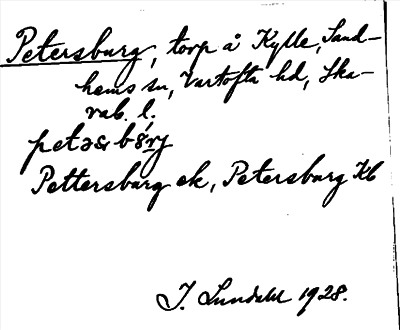 Petersburg, torp å Kylle, Sand-
hems sn, Vartofta hd, Ska-
rab. l.
petəs bórj
Pettersburg ek, Petersburg Kb
I. Lundahl 1928.